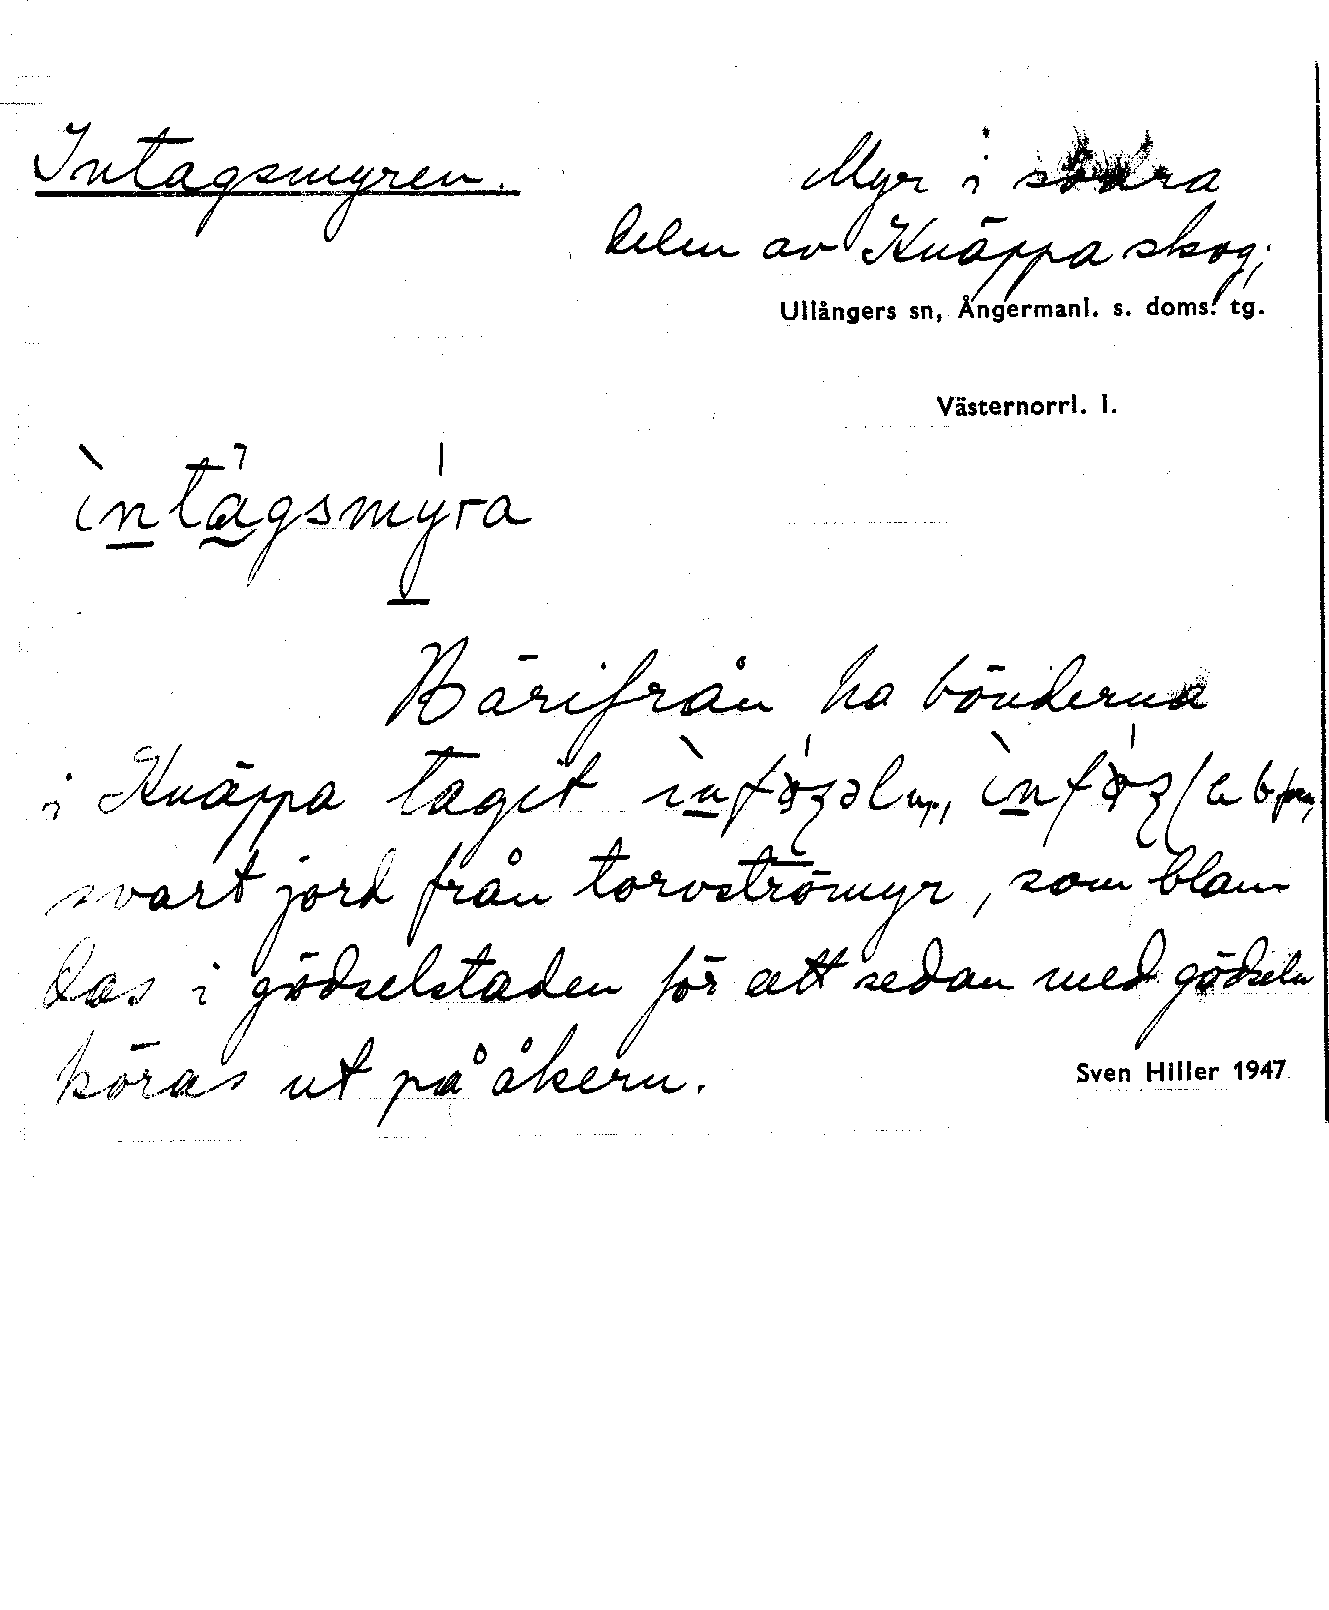 Intagsmyren.
Myr i södra
delen av Knäppa skog;
Ullångers sn, Ångermanl. s. doms. tg.
Västernorrl. l.
ìntàgsmýra
Härifrån ha bönderna
i Knäppa tagit
svart jord från torvströmyr, som blan-
das i gödselstaden för att sedan med gödseln
köras ut på åkern.
Sven Hiller 1947